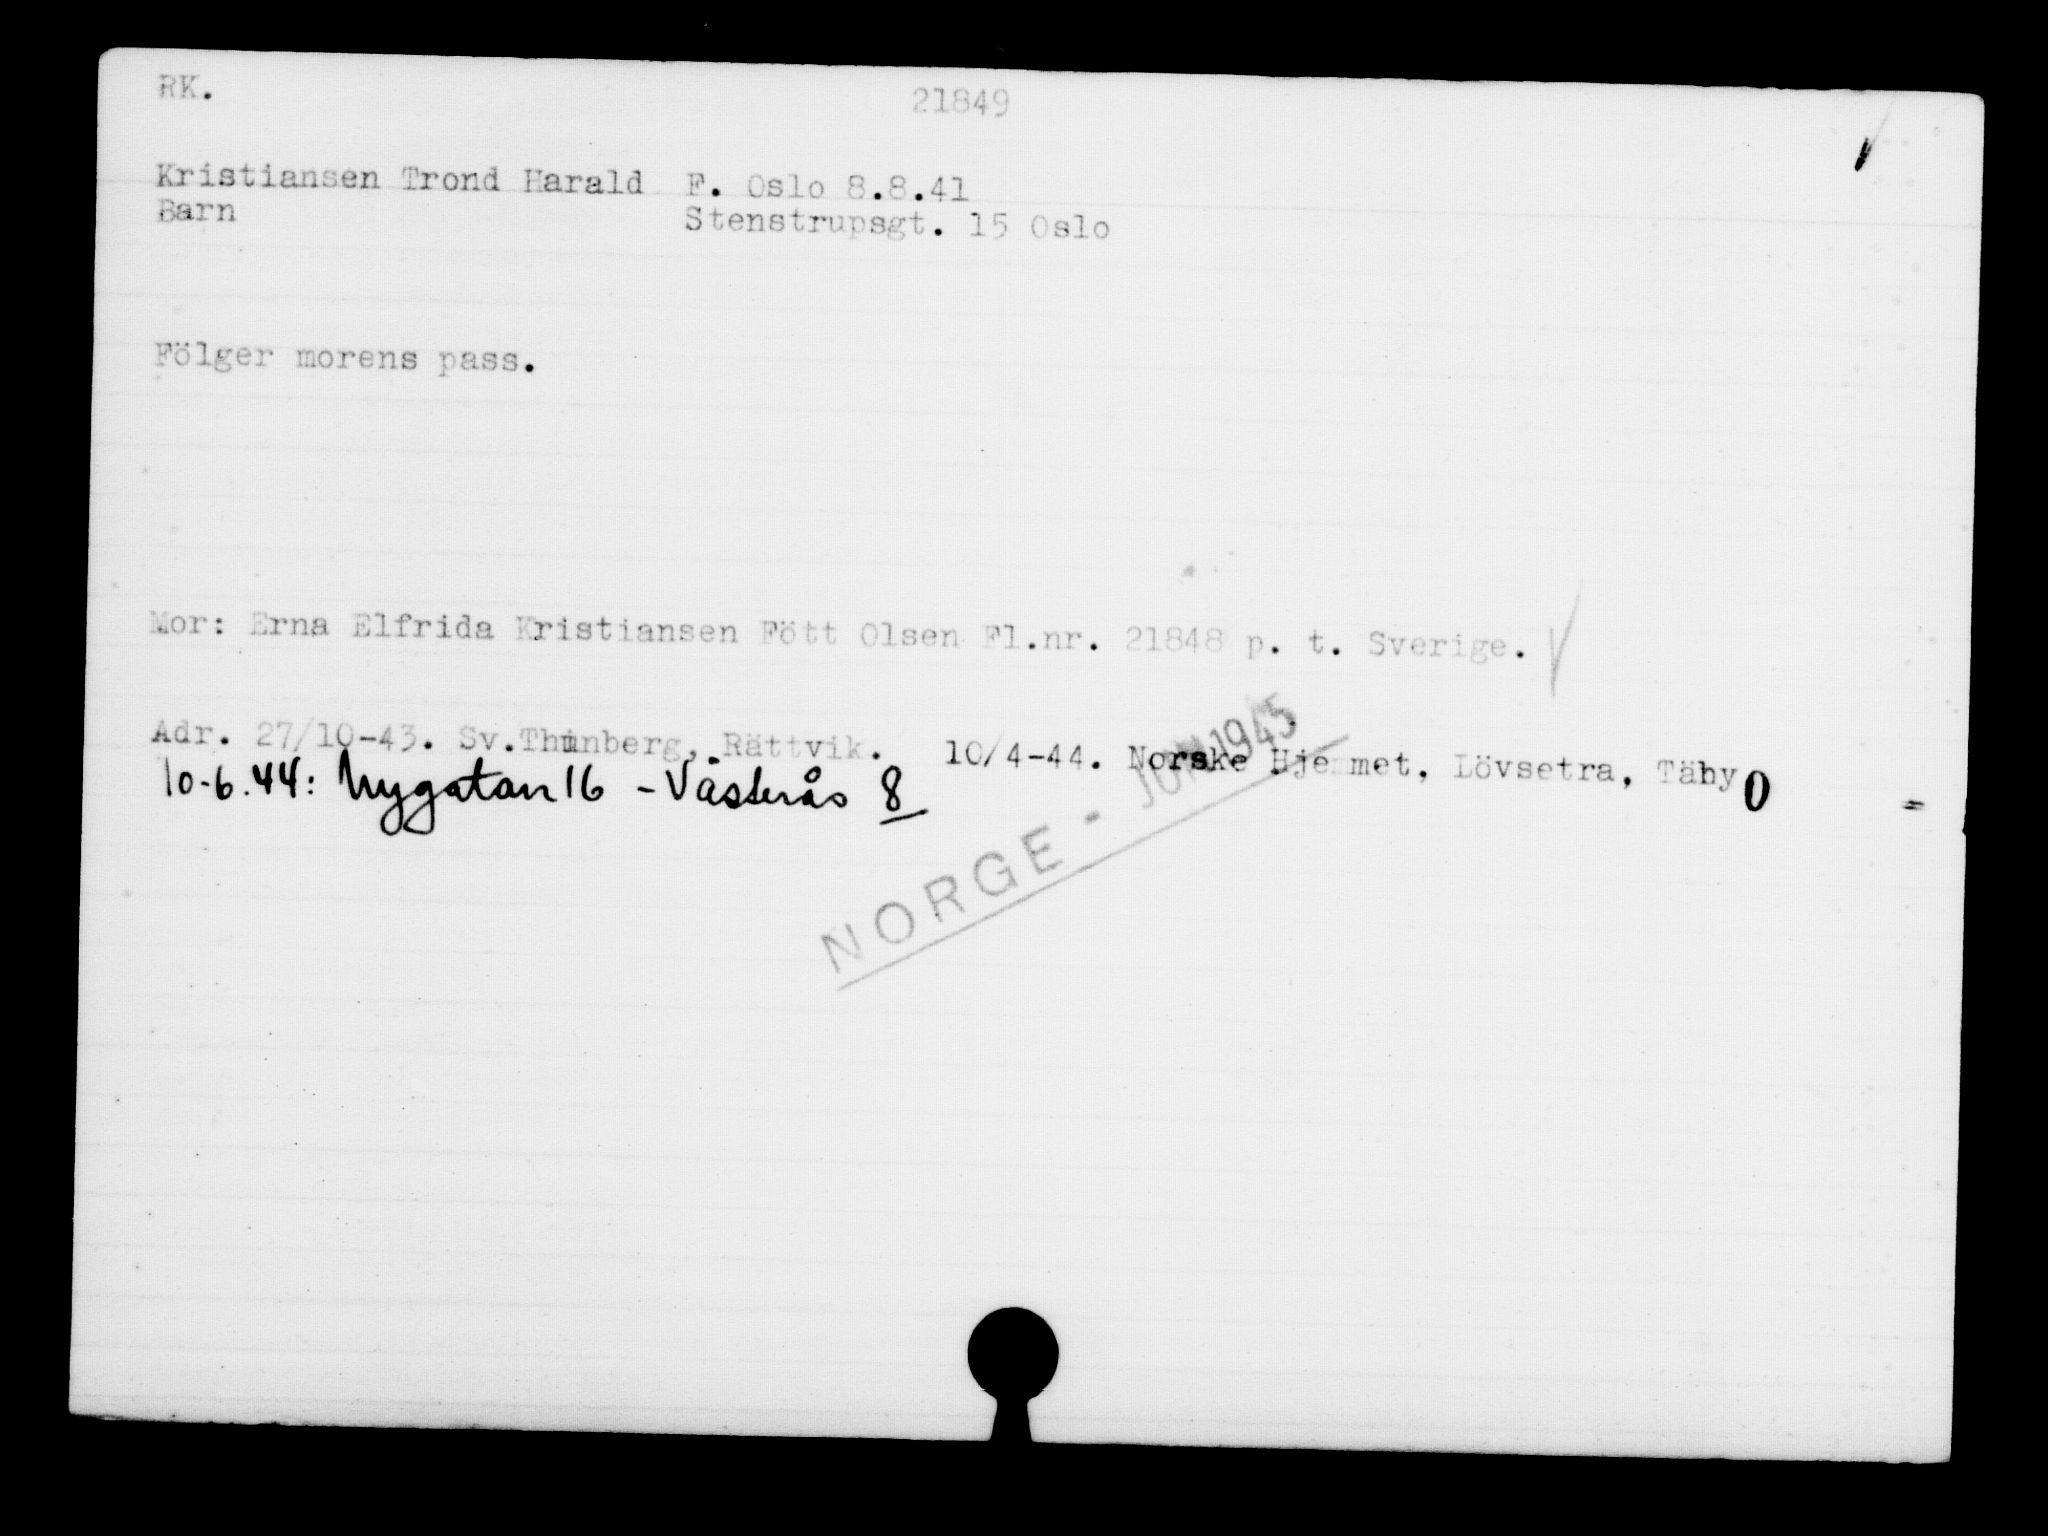 RK. 21849
Kristiansen Trond Harald F. Oslo 8.8.41
Barn Stenstrupsgt. 15 Oslo
Fölger morens pass.
Mor: Erna Elfrida Kristiansen Fött Olsen Fl.nr. 21848 p. t. Sverige.
Adr. 27/10-43. Sv.Thunberg, Rättvik. 10/4-44. Norske Hjemmet, Lövsetra, Täby 0
10-6.44: Nygatan 16 - Västerås 8
NORGE - JUNI 1945